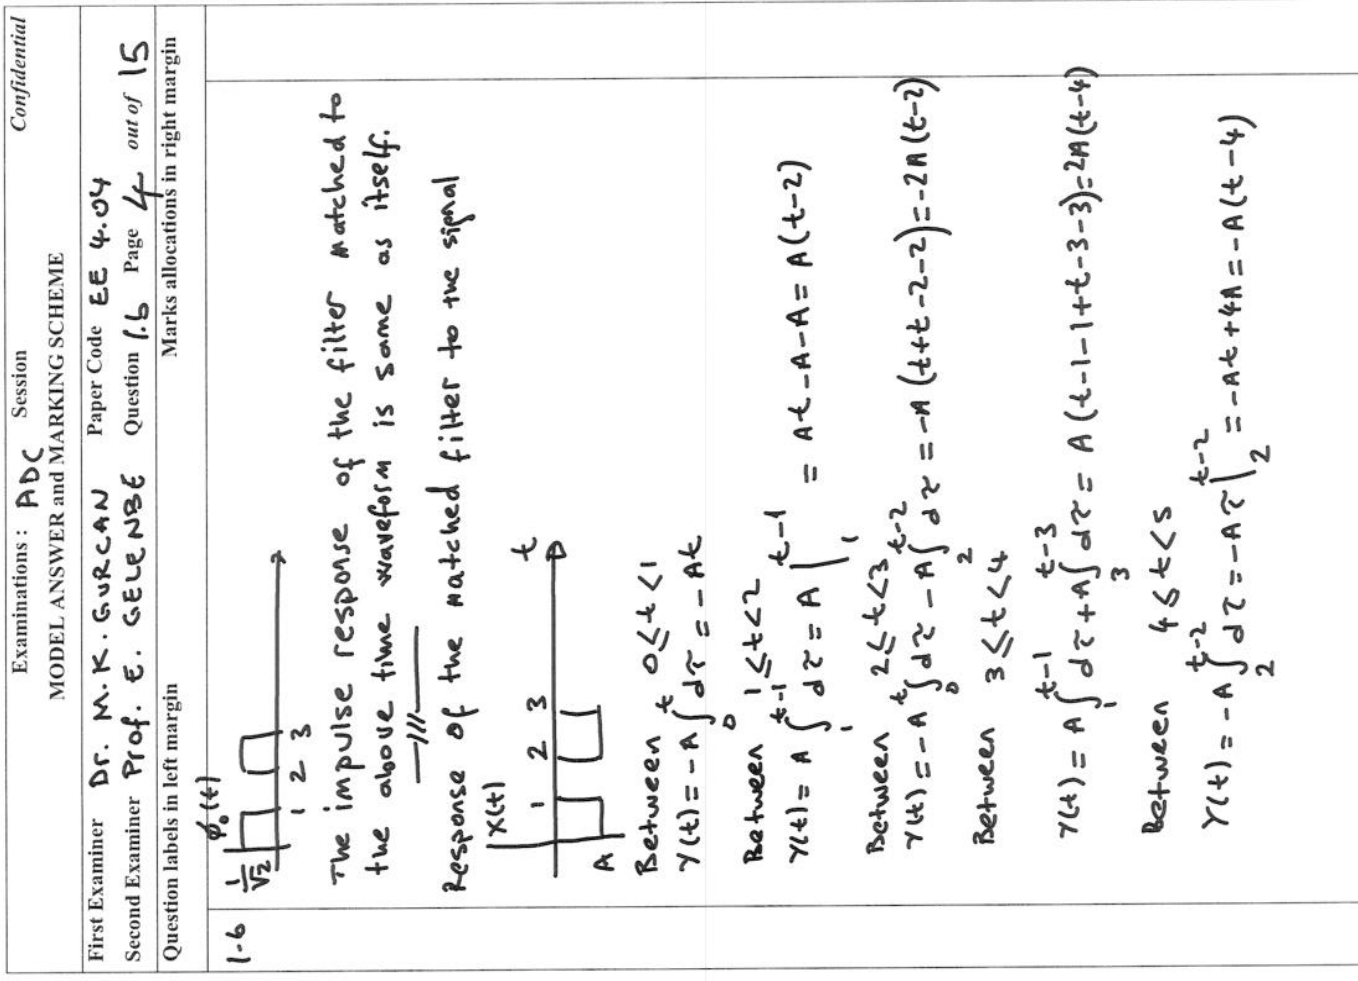 Examinations : ADC Session Confidential
MODEL ANSWER and MARKING SCHEME
First Examiner Dr. M.K. GURCAN Paper Code EE 4.04
Second Examiner Prof. E. GELENBE Question 1.b Page 4 out of 15
Question labels in left margin Marks allocations in right margin
1-b
ϕ₀(t)
1/√2
1 2 3
The impulse response of the filter matched to
the above time waveform is same as itself.
Response of the matched filter to the signal
X(t)
1 2 3 t
A
Between 0≤t<1
Y(t)=-A∫₀^t dτ=-At
Between 1≤t<2
Y(t)=A∫₁^{t-1} dτ=A|₁^{t-1} = At-A-A=A(t-2)
Between 2≤t<3
Y(t)=-A∫₀^t dτ-A∫₂^{t-2} dτ=-A(t+t-2-2)=-2A(t-2)
Between 3≤t<4
Y(t)=A∫₁^{t-1} dτ+A∫₃^{t-3} dτ=A(t-1-1+t-3-3)=2A(t-4)
Between 4≤t<5
Y(t)=-A∫₂^{t-2} dτ=-Aτ|₂^{t-2}=-At+4A=-A(t-4)